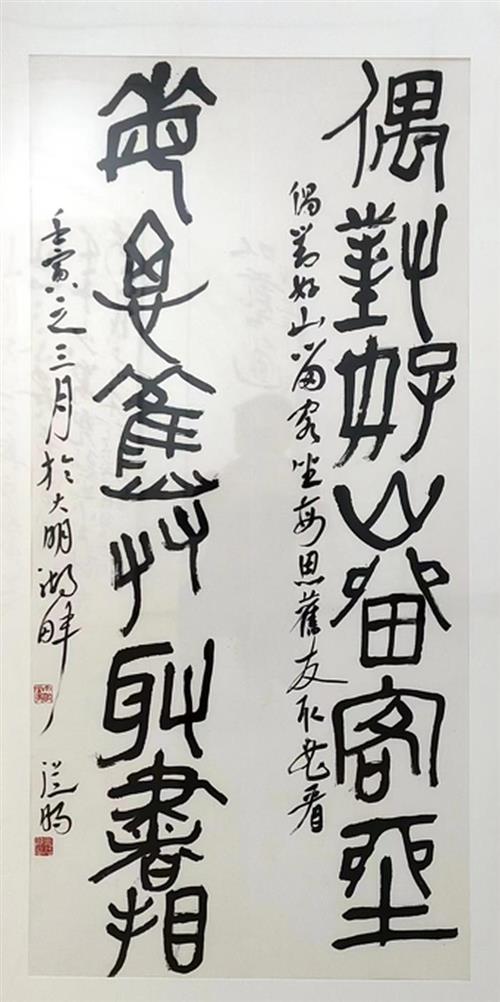 偶對好山留客坐
偶對好山留客坐每思舊友取書看
每思舊友取書看
壬寅之三月於大明湖畔